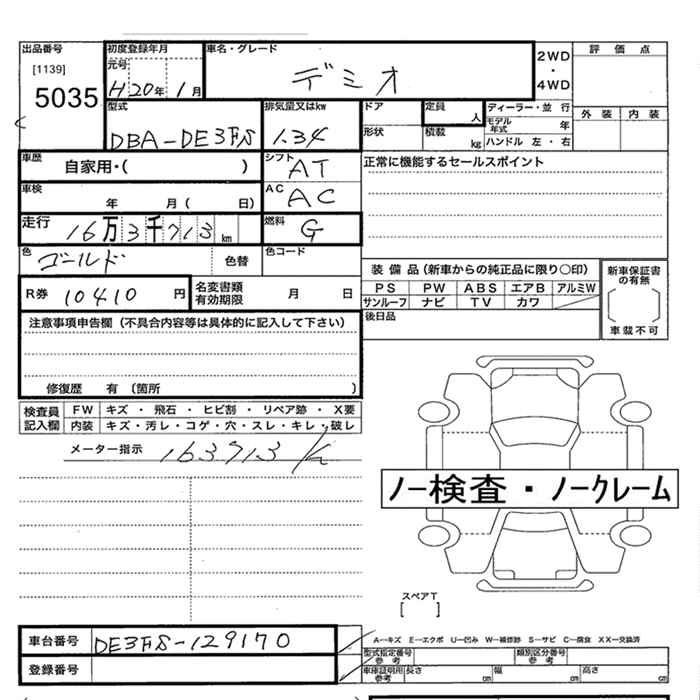 出品番号
[1139]
5035
初度登録年月
元号
H20年 1月
車名・グレード
デミオ
2WD
・
4WD
評価点
外装 内装
型式
DBA-DE3FS
排気量又はkw
1.34
ドア
形状
定員
人
積載
kg
ディーラー・並行
モデル年式 年
ハンドル 左・右
車歴
自家用・( )
シフト
AT
正常に機能するセールスポイント
車検
年 月( 日)
AC
AC
走行
16万3千713km
燃料
G
色
ゴールド
色替
色コード
R券 10410 円
名変書類有効期限 月 日
装備品(新車からの純正品に限り○印)
PS PW ABS エアB アルミW
サンルーフ ナビ TV カワ
後日品
新車保証書の有無
車載不可
注意事項申告欄(不具合内容等は具体的に記入して下さい)
修復歴 有(箇所 )
検査員記入欄
FW キズ・飛石・ヒビ割・リペア跡・X要
内装 キズ・汚レ・コゲ・穴・スレ・キレ・破レ
メーター指示 163713 K
ノー検査・ノークレーム
スペアT
[ ]
車台番号 DE3FS-129170
登録番号
A―キズ E―エクボ U―凹み W―補修跡 S―サビ C―腐食 XX―交換済
型式指定番号
参考
類別区分番号
参考
車庫証明用参考
長さ cm 幅 cm 高さ cm